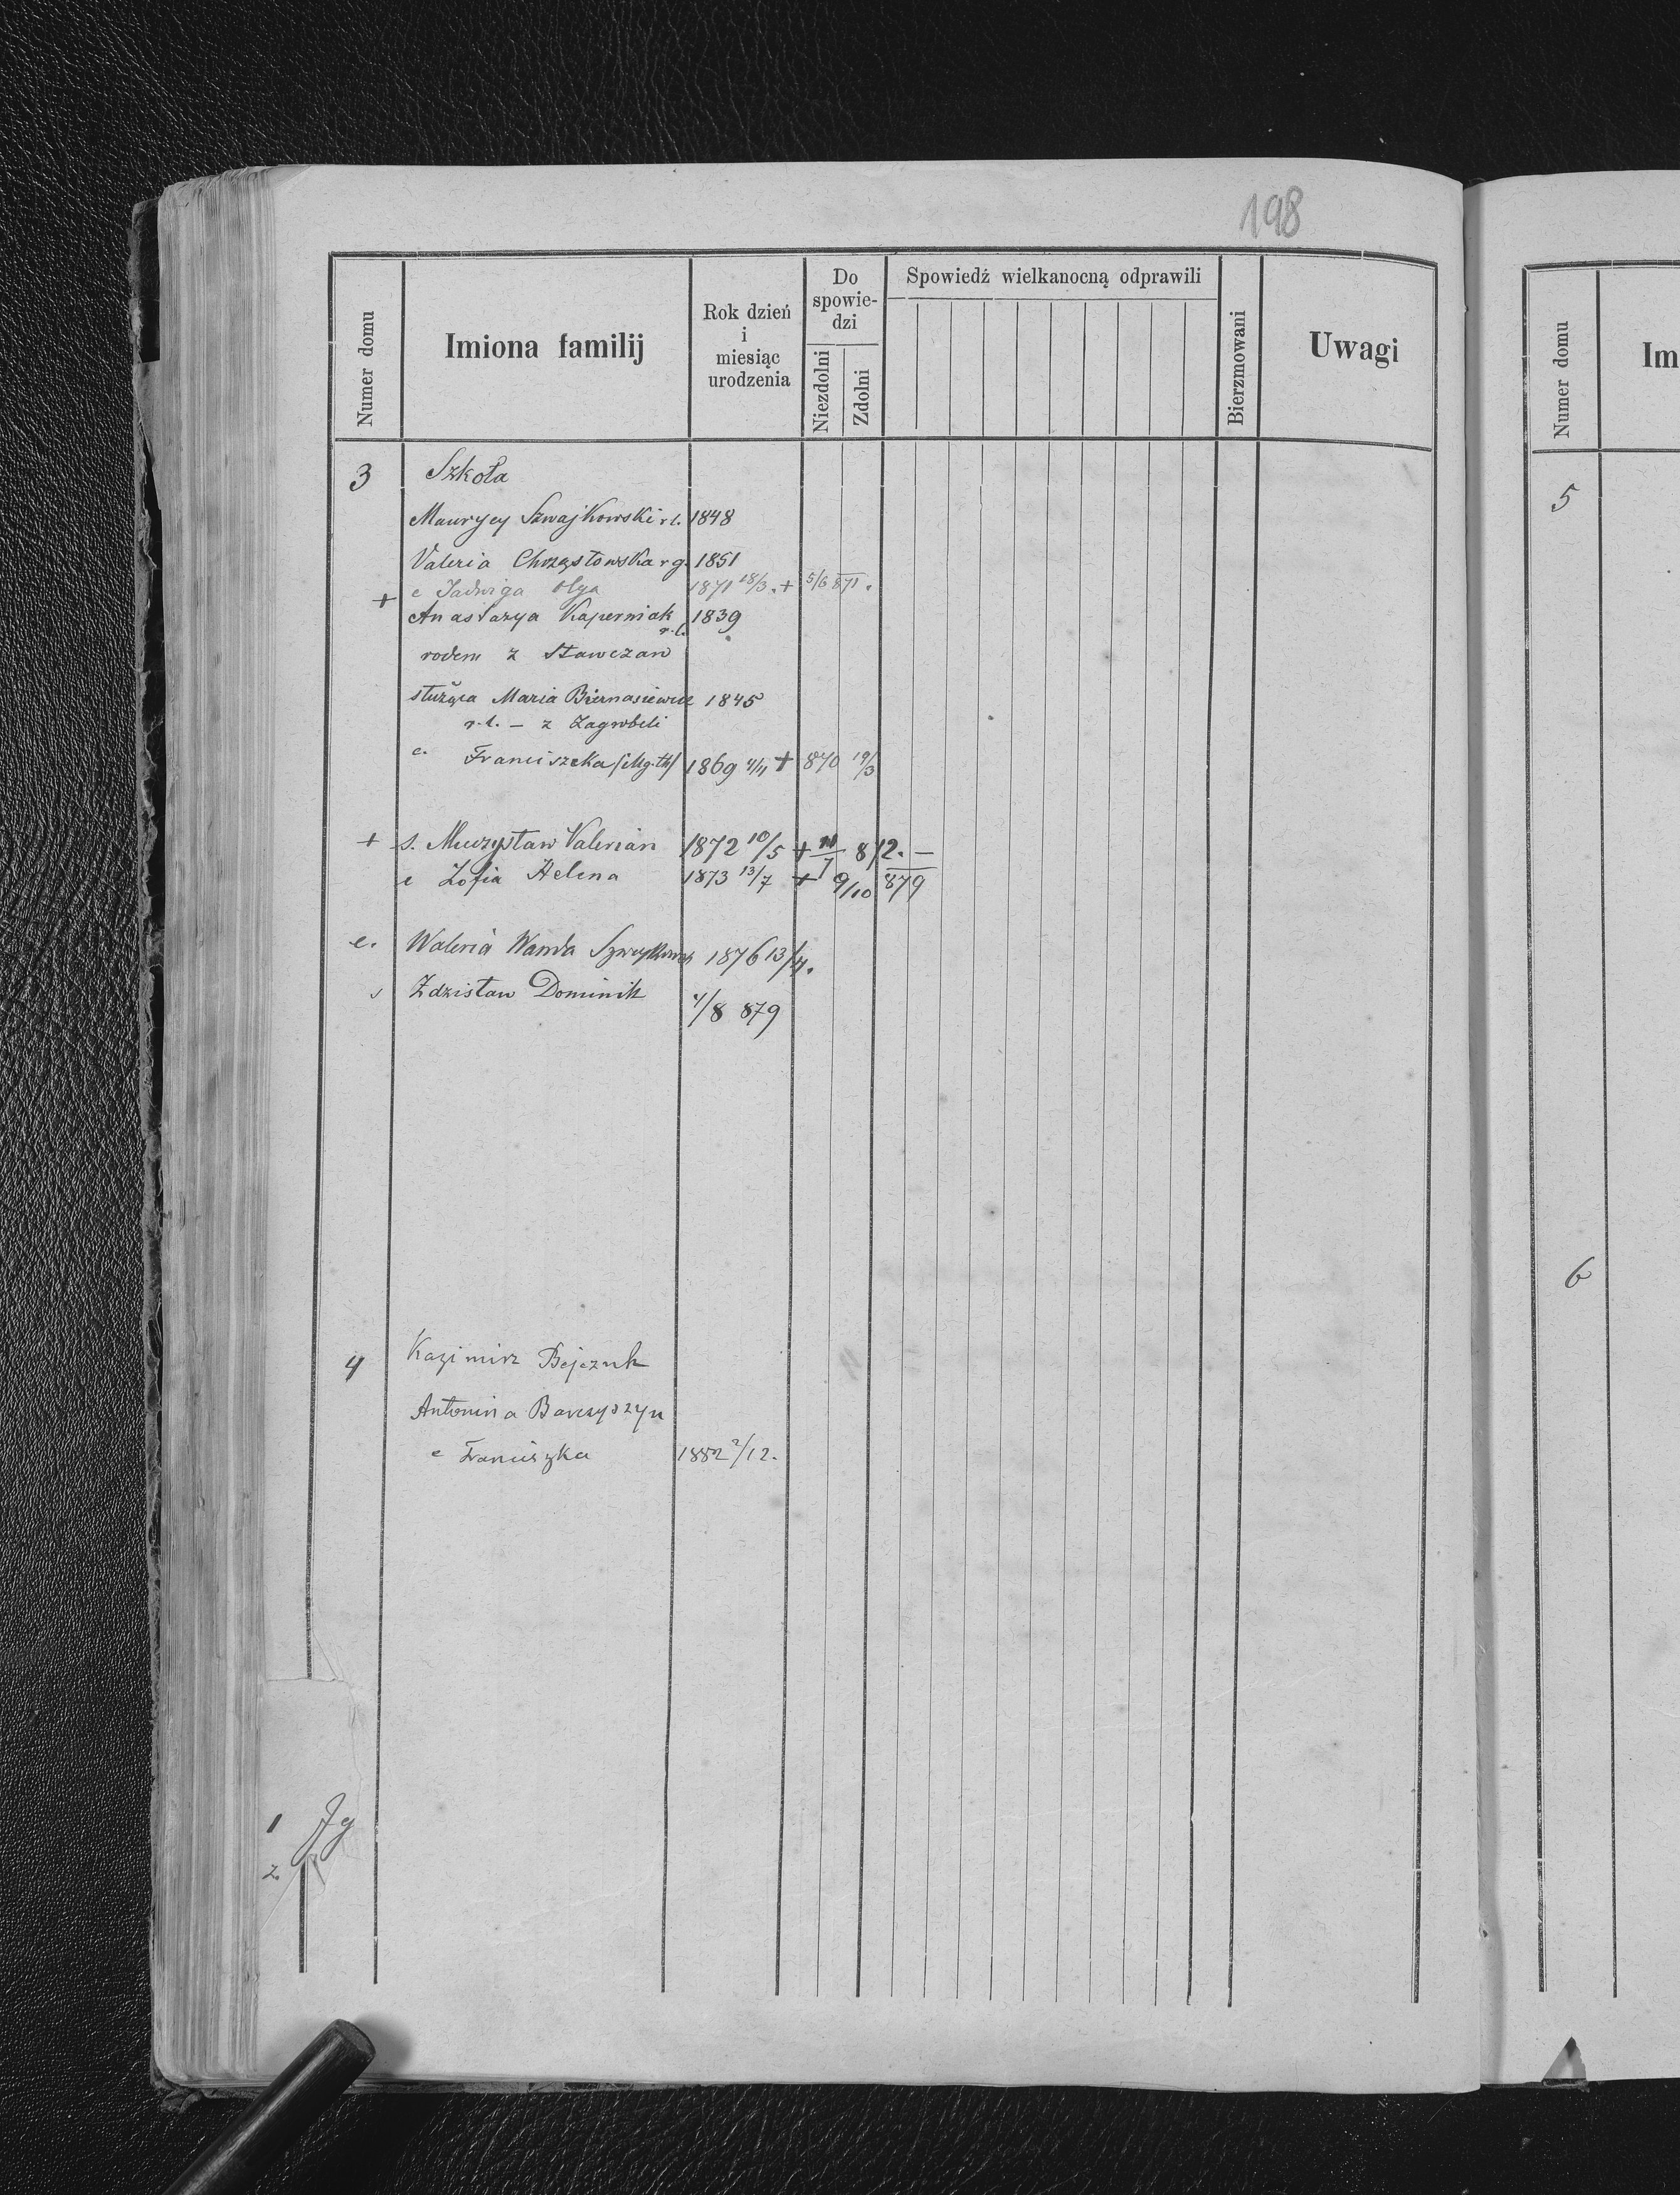 198
Numer domu
Imiona familij
Rok dzień
i
miesiąc
urodzenia
Do
spowie-
dzi
Niezdolni
Zdolni
Spowiedź wielkanocną odprawili
Bierzmowani
Uwagi
3 Szkoła
Maurycy Szwajkowski r.l. 1848
Valeria Chrząstowska r g. 1851
c Jadwiga Olga 1871 18/3. + 5/6 871.
+ Anastazya Kaperniak 1839
r.l.
rodem z Stawczan
służąca Maria Biernasiewicz 1845
r.l. – z Zagrobeli
c. Franciszka 1869 4/4 + 870 19/3
+ s. Mieczysław Valerian 1872 10/5 + 11/7 872. –
c Zofia Helena 1873 13/7 + 9/10 879
c. Waleria Wanda 1876 13/4.
s Zdzisław Dominik 4/8 879
4 Kazimirz Bejczuk
Antonina Barczyszyn
c Franciszka 1882 2/12.
1
2
Numer domu
Im
5
6